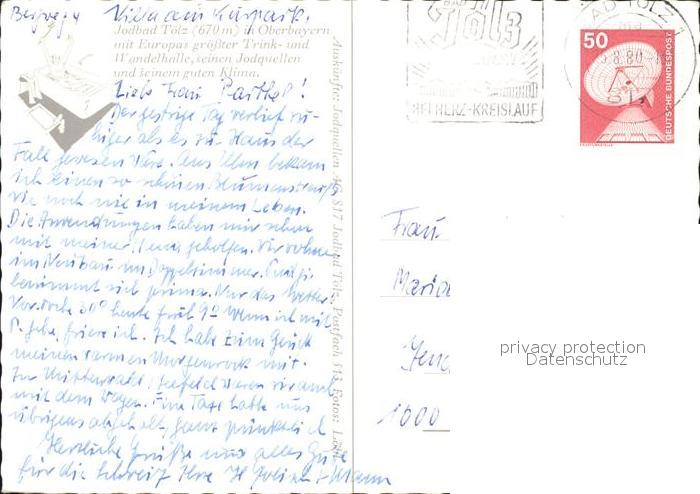 Villa am Kurpark.
Jodbad Tölz (670 m) in Oberbayern
mit Europas größter Trink- und
Wandelhalle, seinen Jodquellen
und seinem guten Klima.
Liebe Frau Parthel!
Der gestrige Tag verlief ru-
higer als es zu Haus der
Fall gewesen wäre. Aus Ulm bekam
ich einen so schönen Blumenstrauß
wie noch nie in meinem Leben.
Die Anwendungen haben mir schon
mit meiner geholfen. Wir wohnen
im Neubau im Doppelzimmer.
benimmt sich prima. Nur das Wetter
Vor. Woche 30° heute früh 9° Wenn ich mit
P. gehe, friere ich. Ich habe zum Glück
meinen warmen Morgenrock mit.
In Mittenwald, Seefeld waren wir auch
mit dem Wagen. Eine Taxe hatte uns
übrigens abgeholt, ganz pünktlich
Herzliche Grüße und alles Gute
für die Schweiz Ihre H. + Mann
Auskünfte: Jodquellen AG, 817 Jodbad Tölz, Postfach
BAD
Tölz
BEI HERZ-KREISLAUF
BAD TÖLZ 1
8.80
50
DEUTSCHE BUNDESPOST
Frau
Maria
Jena
1000
privacy protection
Datenschutz